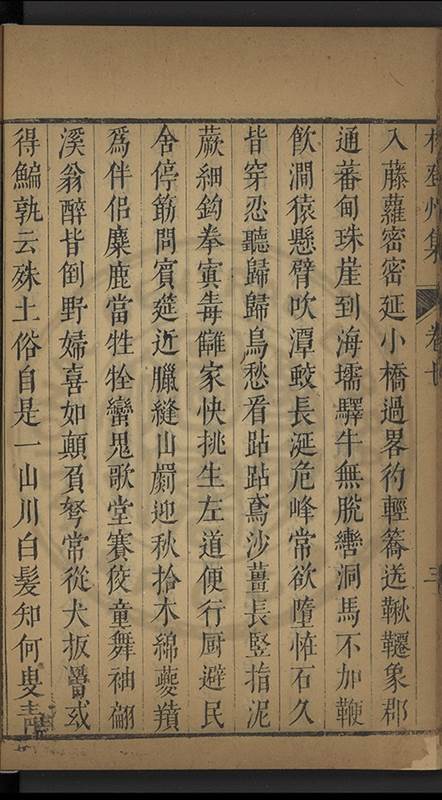 入藤蘿密密延小橋過畧彴輕籌送鞦韆象郡
通蕃甸珠崖到海壖驛牛無脫轡洞馬不加鞭
飲澗猿懸臂吹潭鮫長涎危峰常欲墮恠石久
皆穿忍聽歸歸鳥愁看跕跕鳶沙薑長竪指泥
蕨細鉤拳寅毒讎家快挑生左道便行厨避民
舍停筯問賓筵近臘縫山罽迎秋拾木綿夔獖
爲伴侶麋鹿當牲牷蠻鬼歌堂賽㑪童舞袖翩
溪翁醉皆倒野婦喜如顛負弩常從犬扳罾或
得鯿孰云殊土俗自是一山川白髮知何叟青
集
卷